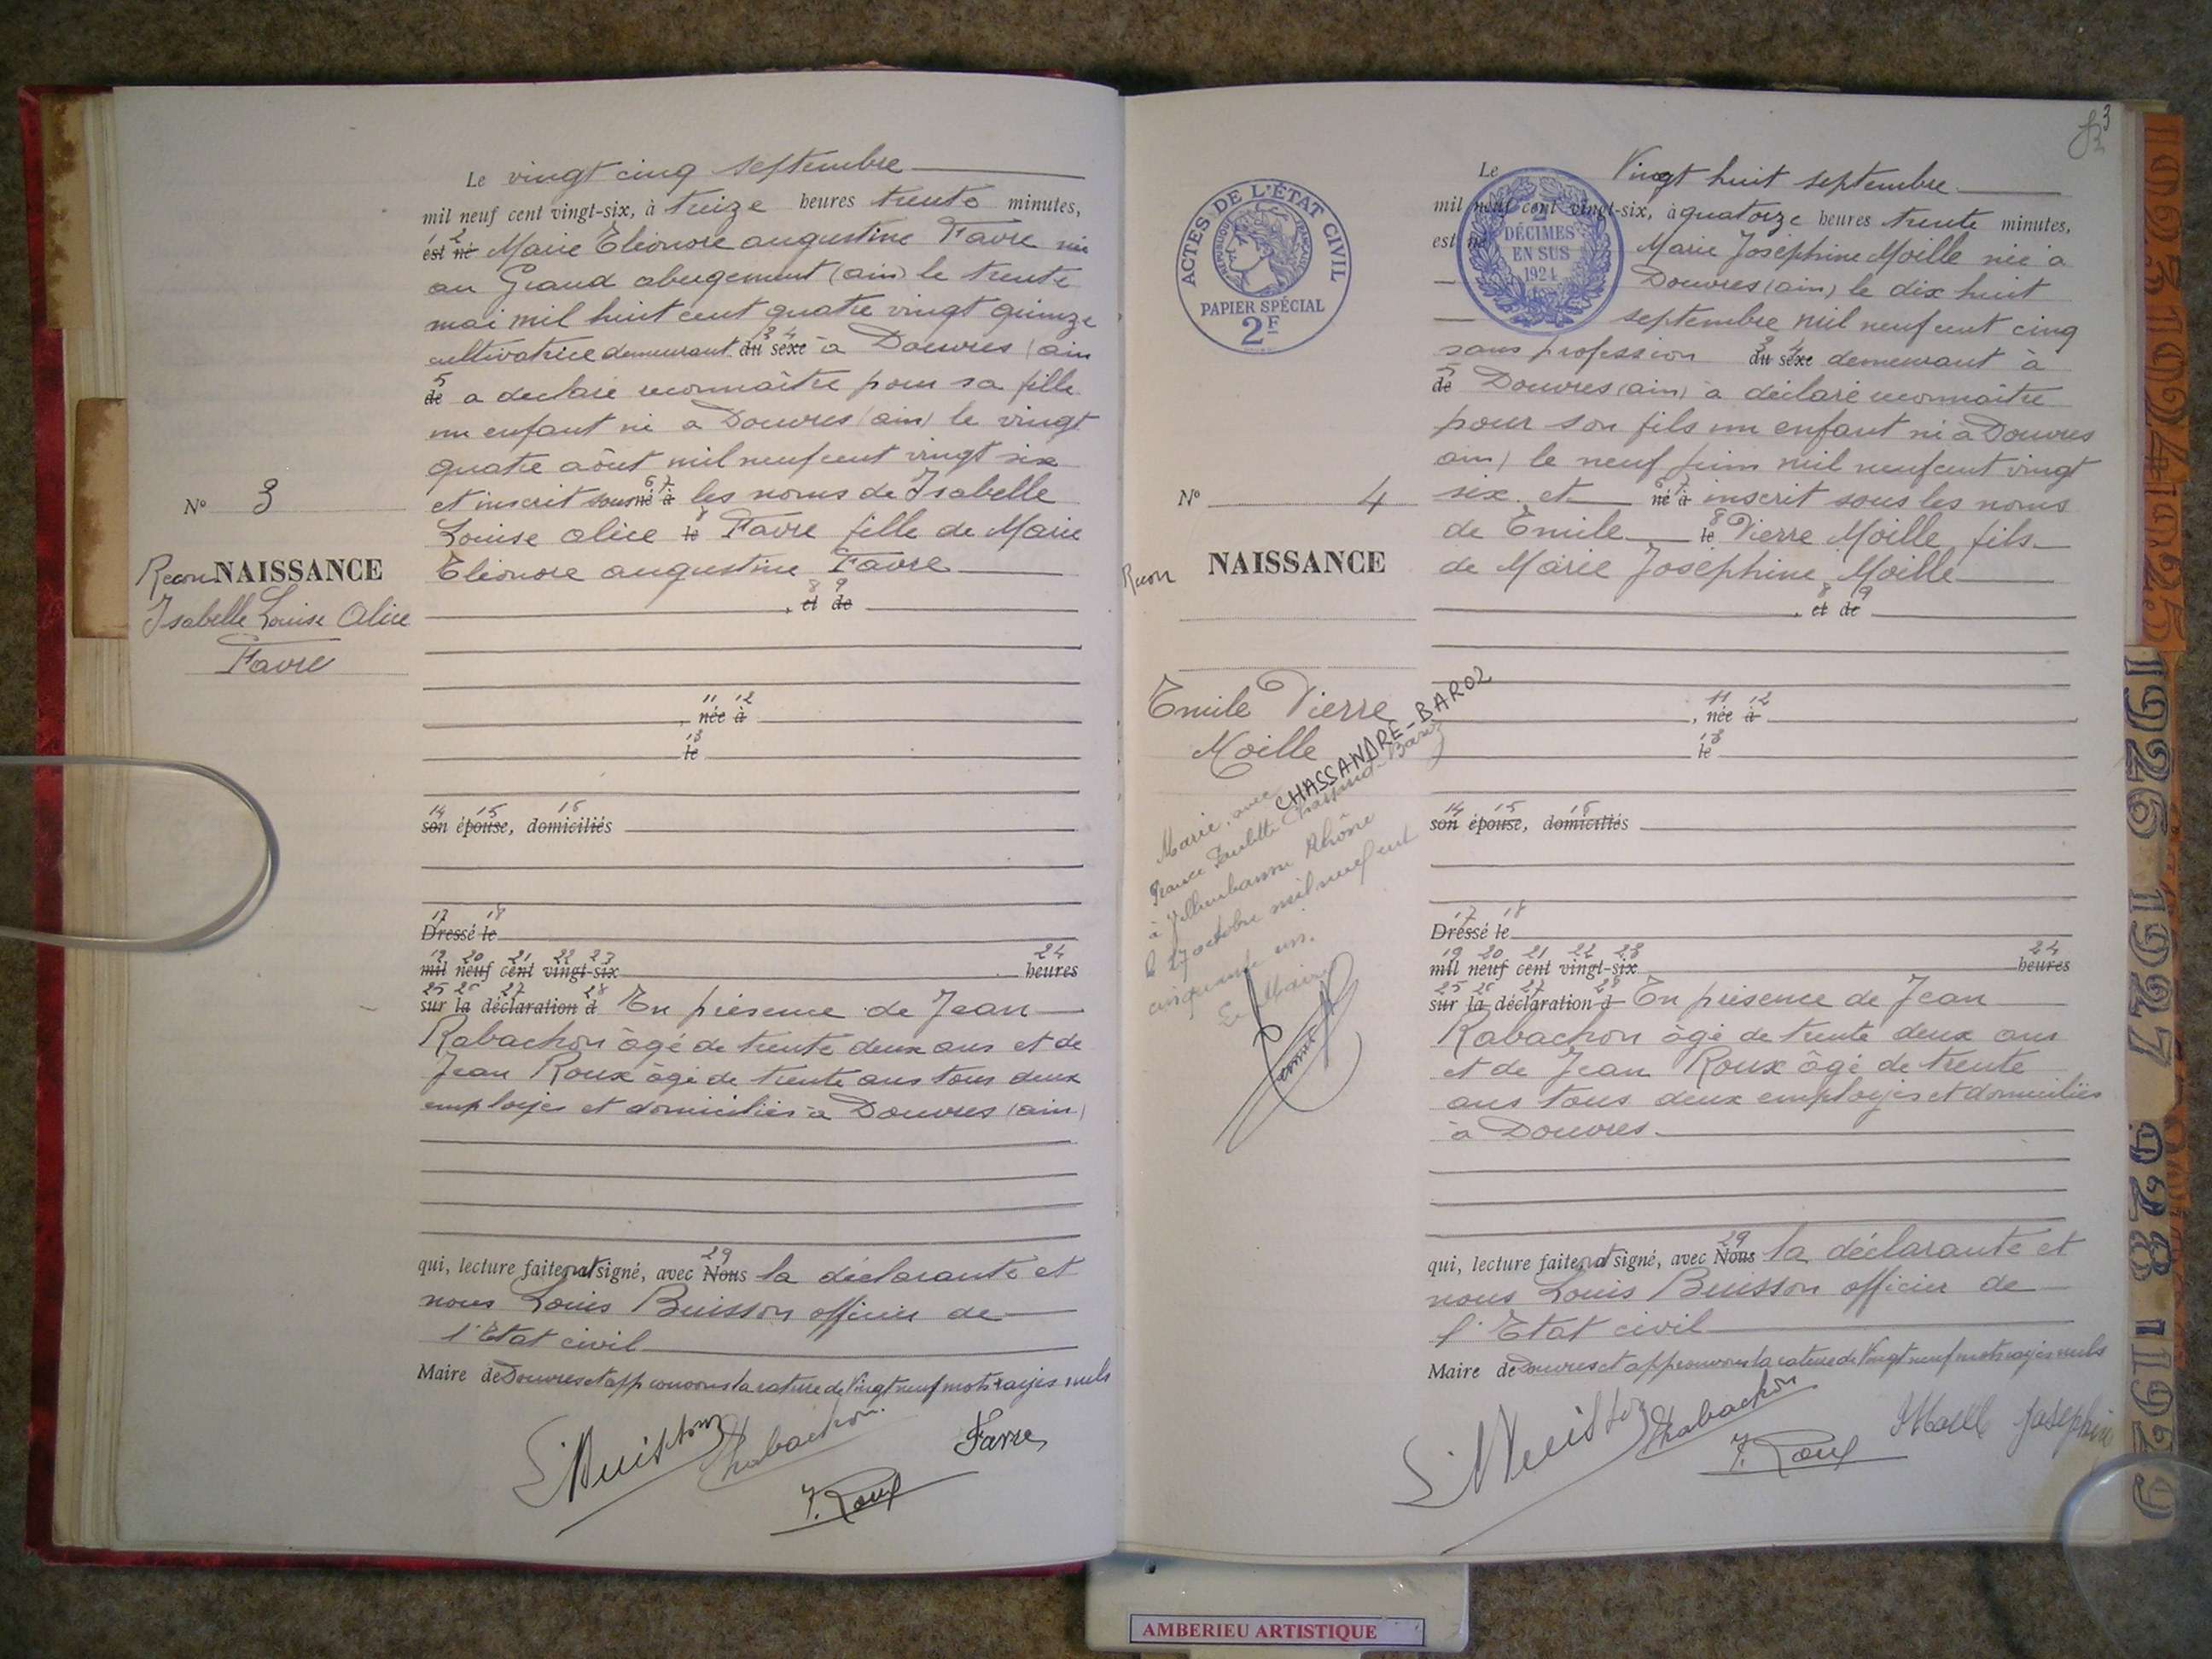 Le vingt cinq septembre
mil neuf cent vingt-six, à treize heures trente minutes,
1 2
est né Marie Eléonore augustine Favre née
au Grand abergement (ain) le trente
mai mil huit cent quatre vingt quinze
3 4
cultivatrice demeurant du sexe à Douvres (ain
5
de a déclaré reconnaître pour sa fille
un enfant né à Douvres (ain) le vingt
quatre aôut mil neuf cent vingt six
6 7
et inscrit sous né à les noms de Isabelle
8
Louise alice le Favre fille de Marie
Eléonore augustine Favre
8 9
, et de
11 12
, née à
13
le
14 15 16
son épouse, domiciliés
17 18
Dressé le
19 20 21 22 23 24
mil neuf cent vingt-six heures
25 26 27 28
sur la déclaration d En présence de Jean
Rabachon âgé de trente deux ans et de
Jean Roux âgé de trente ans tous deux
employés et domiciliés à Douvres (ain)
29
qui, lecture faite, ont signé, avec Nous la déclarante et
nous Louis Buisson officier de
l'Etat civil
Maire de Douvres et approuvons la rature de Vingt neuf mots rayés nuls
L. Buisson
Rabachon
J. Roux
Favre
N° 3
Recon NAISSANCE
Isabelle Louise Alice
Favre
3
ACTES DE L'ÉTAT CIVIL
RÉPUBLIQUE FRANÇAISE
PAPIER SPÉCIAL
2F
2
DÉCIMES
EN SUS
1924
Le Vingt huit septembre
mil neuf cent vingt-six, à quatorze heures trente minutes,
est né Marie Joséphine Moille née à
Douvres (ain) le dix huit
septembre mil neuf cent cinq
3 4
sans profession du sexe demeurant à
5
de Douvres (ain) a déclaré reconnaître
pour son fils un enfant né à Douvres
ain) le neuf juin mil neuf cent vingt
6 7
six et né à inscrit sous les noms
8
de Emile le Pierre Moille fils
de Marie Joséphine Moille
8 9
, et de
11 12
, née à
13
le
14 15 16
son épouse, domiciliés
17 18
Dressé le
19 20 21 22 23 24
mil neuf cent vingt-six heures
25 26 27 28
sur la déclaration d En présence de Jean
Rabachon âgé de trente deux ans
et de Jean Roux âgé de trente
ans tous deux employés et domiciliés
à Douvres
29
qui, lecture faite, ont signé, avec Nous la déclarante et
nous Louis Buisson officier de
l'Etat civil
Maire de Douvres et approuvons la rature de Vingt neuf mots rayés nuls
L. Buisson
Rabachon
J. Roux
Moille Joséphine
N° 4
Recon NAISSANCE
Emile Pierre
Moille
CHASSANDRE-BAROZ
Marié, avec
Paulette
à Villeurbanne Rhône
le 27 octobre mil neuf cent
cinquante un.
Le Maire
1924 1925
1926 1927 1928 1929
AMBERIEU ARTISTIQUE